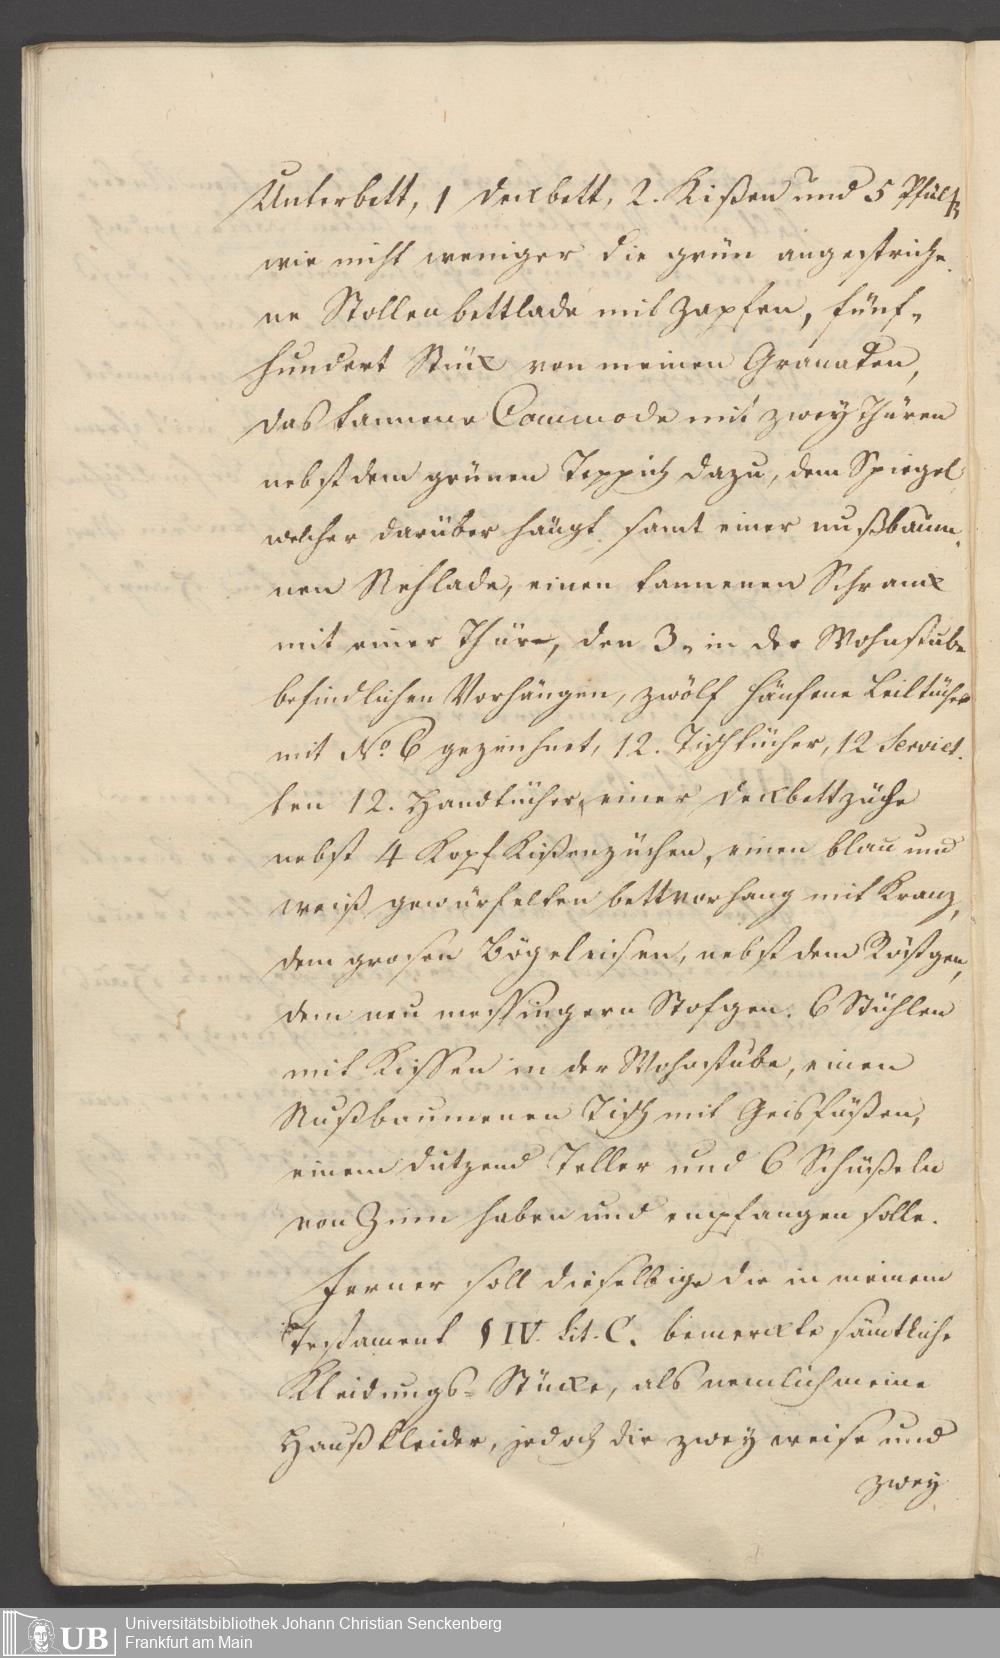 Unterbett, 1 Deckbett, 2. Kißen und 5 Pfülb
wie nicht weniger die grün angestriche
ne Stollenbettlade mit Zapfen, fünf-
hundert Stück von meinen Granaten,
das tannene Commode mit zwey Thüren
nebst dem grünen Teppich dazu, dem Spiegel
welcher darüber hängt samt einer nußbaum-
nen Nehlade, einen tannenen Schranck
mit einer Thür, den 3. in der Wohnstube
befindlichen Vorhängen, zwölf hänfene Leiltücher
mit No. 6 gezeichnet, 12. Tischtücher, 12 Serviet-
ten 12. Handtücher, einer Deckbettzüche
nebst 4 Kopf Kißenzüchen, einen blau und
weiß gewürfelten bettvorhang mit Kranz,
dem grosen Bögeleisen, nebst dem Röstgen,
dem neu messingern Stofgen. 6 Stühlen
mit Kissen in der Wohnstube, einen
Nußbaumenen Tisch mit Geisfüßen,
einem Dutzend Teller und 6 Schüßeln
von Zinn haben und empfangen solle.
Ferner soll dieselbige die in meinem
Testament § IV. Lit. C. bemerckte sämtliche
Kleidungs-Stücke, als nemlich meine
Haußkleider, jedoch die zwey weise und
zwey
Universitätsbibliothek Johann Christian Senckenberg
Frankfurt am Main
UB